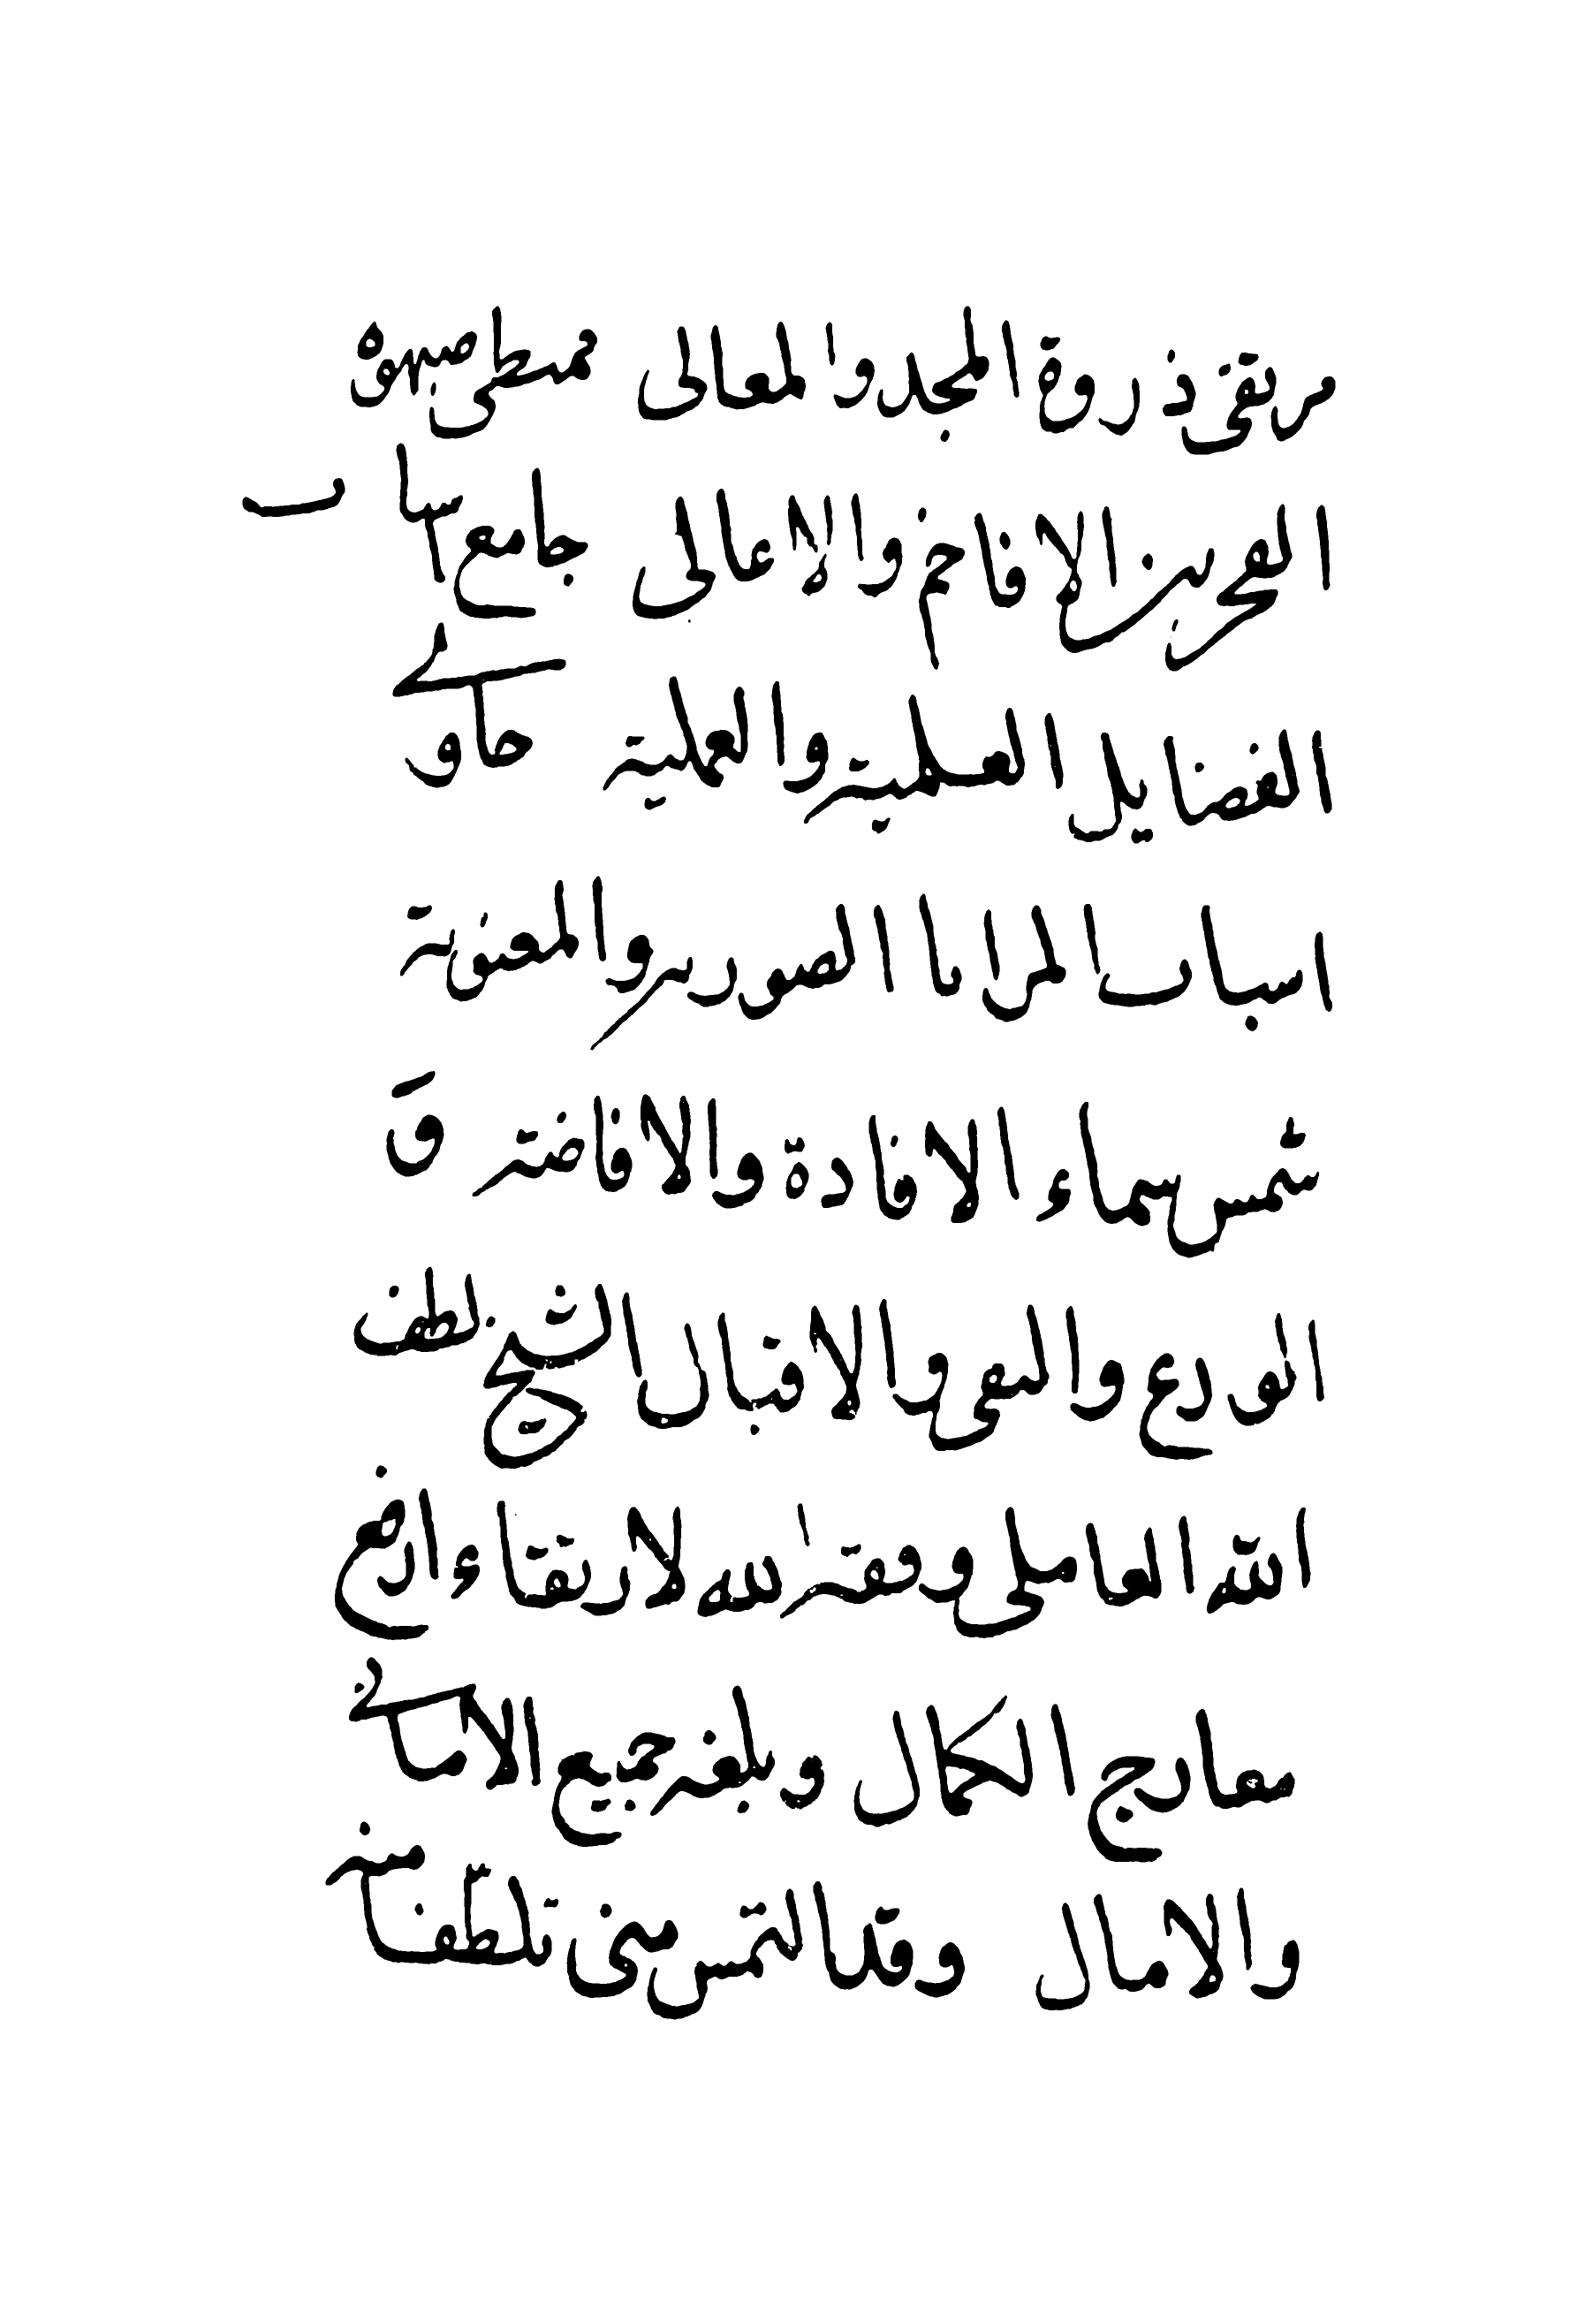 مرتقى ذروة المجد والمعالى ممتطى صهوة
الفخر بين الافاخم والاعالى جامع اسباب
الفضايل العلميه والعملية حاوى
اسباب المزايا الصوريه والمعنوية
شمس سماء الافادة والافاضه و
الورع والسعى والاقبال الشيخ لطف
الله العاملى وفقه الله لارتقاء ارفع
معارج الكمال وبلغه جميع الامانى
والامال وقد التمس منى تلطفا منه